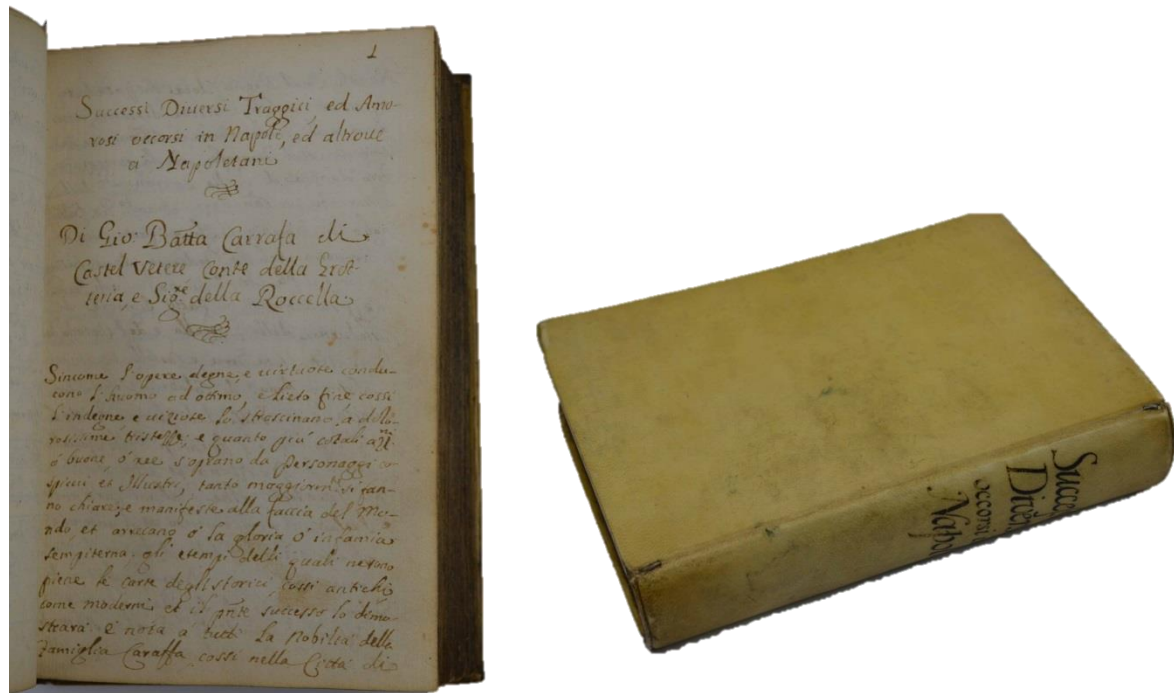 1
Successi Diuersi Traggici, ed Amo-
rosi occorsi in Napoli, ed altroue
a Napoletani
Di Gio: Batta Carrafa di
Castel Vetere Conte della Grot-
teria, e Sig.re della Roccella
Sincome l'opere degne, e uirtuose condu-
cono l'huomo ad ottimo, e lieto fine cossi
l'indegne e uiziose lo strascinano a dolo-
rosissime tristezze; e quanto più cotali
ó buone, ó ree s'oprano da Personaggi co-
spicui et Illustri, tanto si ren-
no chiare, e manifeste alla faccia del Mo-
ndo, et arrecano ó la gloria ó infamia
sempiterna: gli esempi delli quali ne sono
piene le carte degl'storici, cossi antichi
come moderni, et il pnte successo lo dimo-
strará. É nota a tutti la Nobiltá della
Famiglia Caraffa cossi nella Cittá di
Succe
Diuers
occorsi
Napo